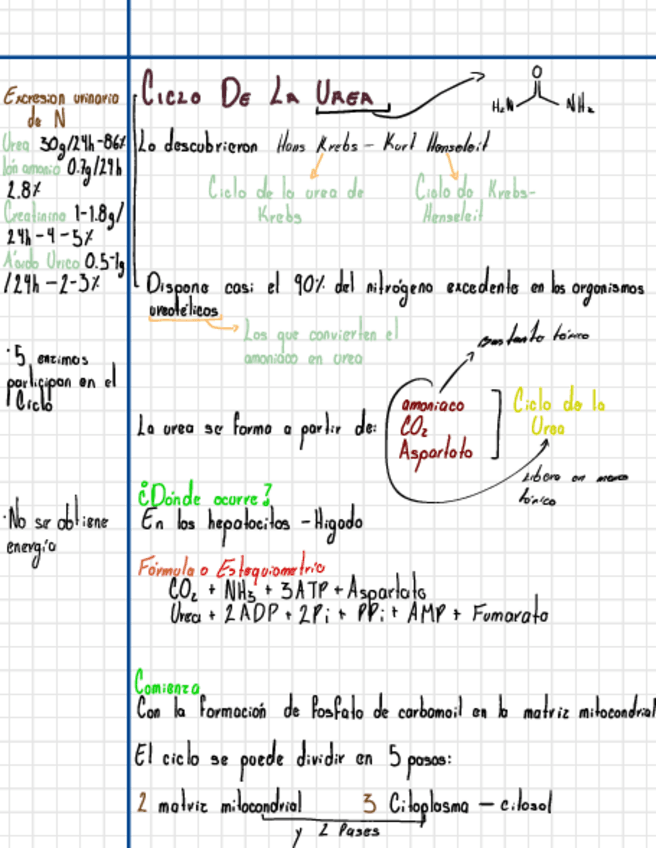 Excresion urinario
de N
Urea 30g/24h-86%
Ión amonio 0.7g/24h
2.8%
Creatinina 1-1.8g/
24h-4-5%
Ácido Urico 0.5-1g
/24h-2-3%
·5 enzimas
participan en el
Ciclo
·No se obtiene
energía
Ciclo De La Urea
O
H₂N NH₂
Lo descubrieron Hans Krebs - Kurl Henseleit
Ciclo de la urea de
Krebs
Ciclo de Krebs-
Henseleit
Dispone casi el 90% del nitrógeno excedente en los organismos
ureotélicos
Los que convierten el
amoniaco en urea
sustanta tóxico
La urea se forma a partir de:
amoniaco
CO₂
Aspartato
Ciclo de la
Urea
Libera en menos
tóxico
¿Dónde ocurre?
En los hepatocitos - Higado
Fórmula o Estequiometria
CO₂ + NH₃ + 3ATP + Aspartato
Urea + 2ADP + 2Pi + PPi + AMP + Fumarato
Comienza
Con la formación de fosfato de carbamoil en la matriz mitocondrial
El ciclo se puede dividir en 5 pasos:
2 matriz mitocondrial 3 Citoplasma - citosol
y 2 Pases